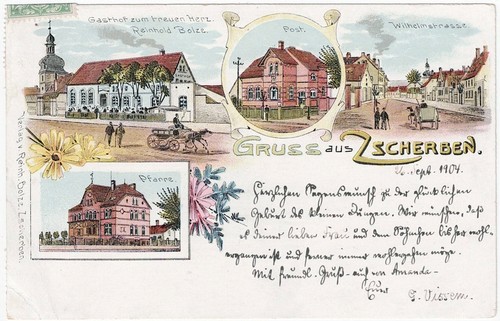 Gasthof zum treuen Herz.
Reinhold Bolze.
Post.
Wilhelmstrasse
Gruss aus Zscherben.
Pfarre.
Verlag v. Reinh. Bolze, Zscherben.
Sept. 1904.
Herzlichen Segenswunsch zu der glücklichen
Geburt des kleinen Jungen. Wir wünschen, daß
es deiner lieben Frau und dem Söhnchen bisher wohl
ergangen ist und ferner immer wohlergehen möge.
Mit freundl. Gruß auch von Amanda
Euer